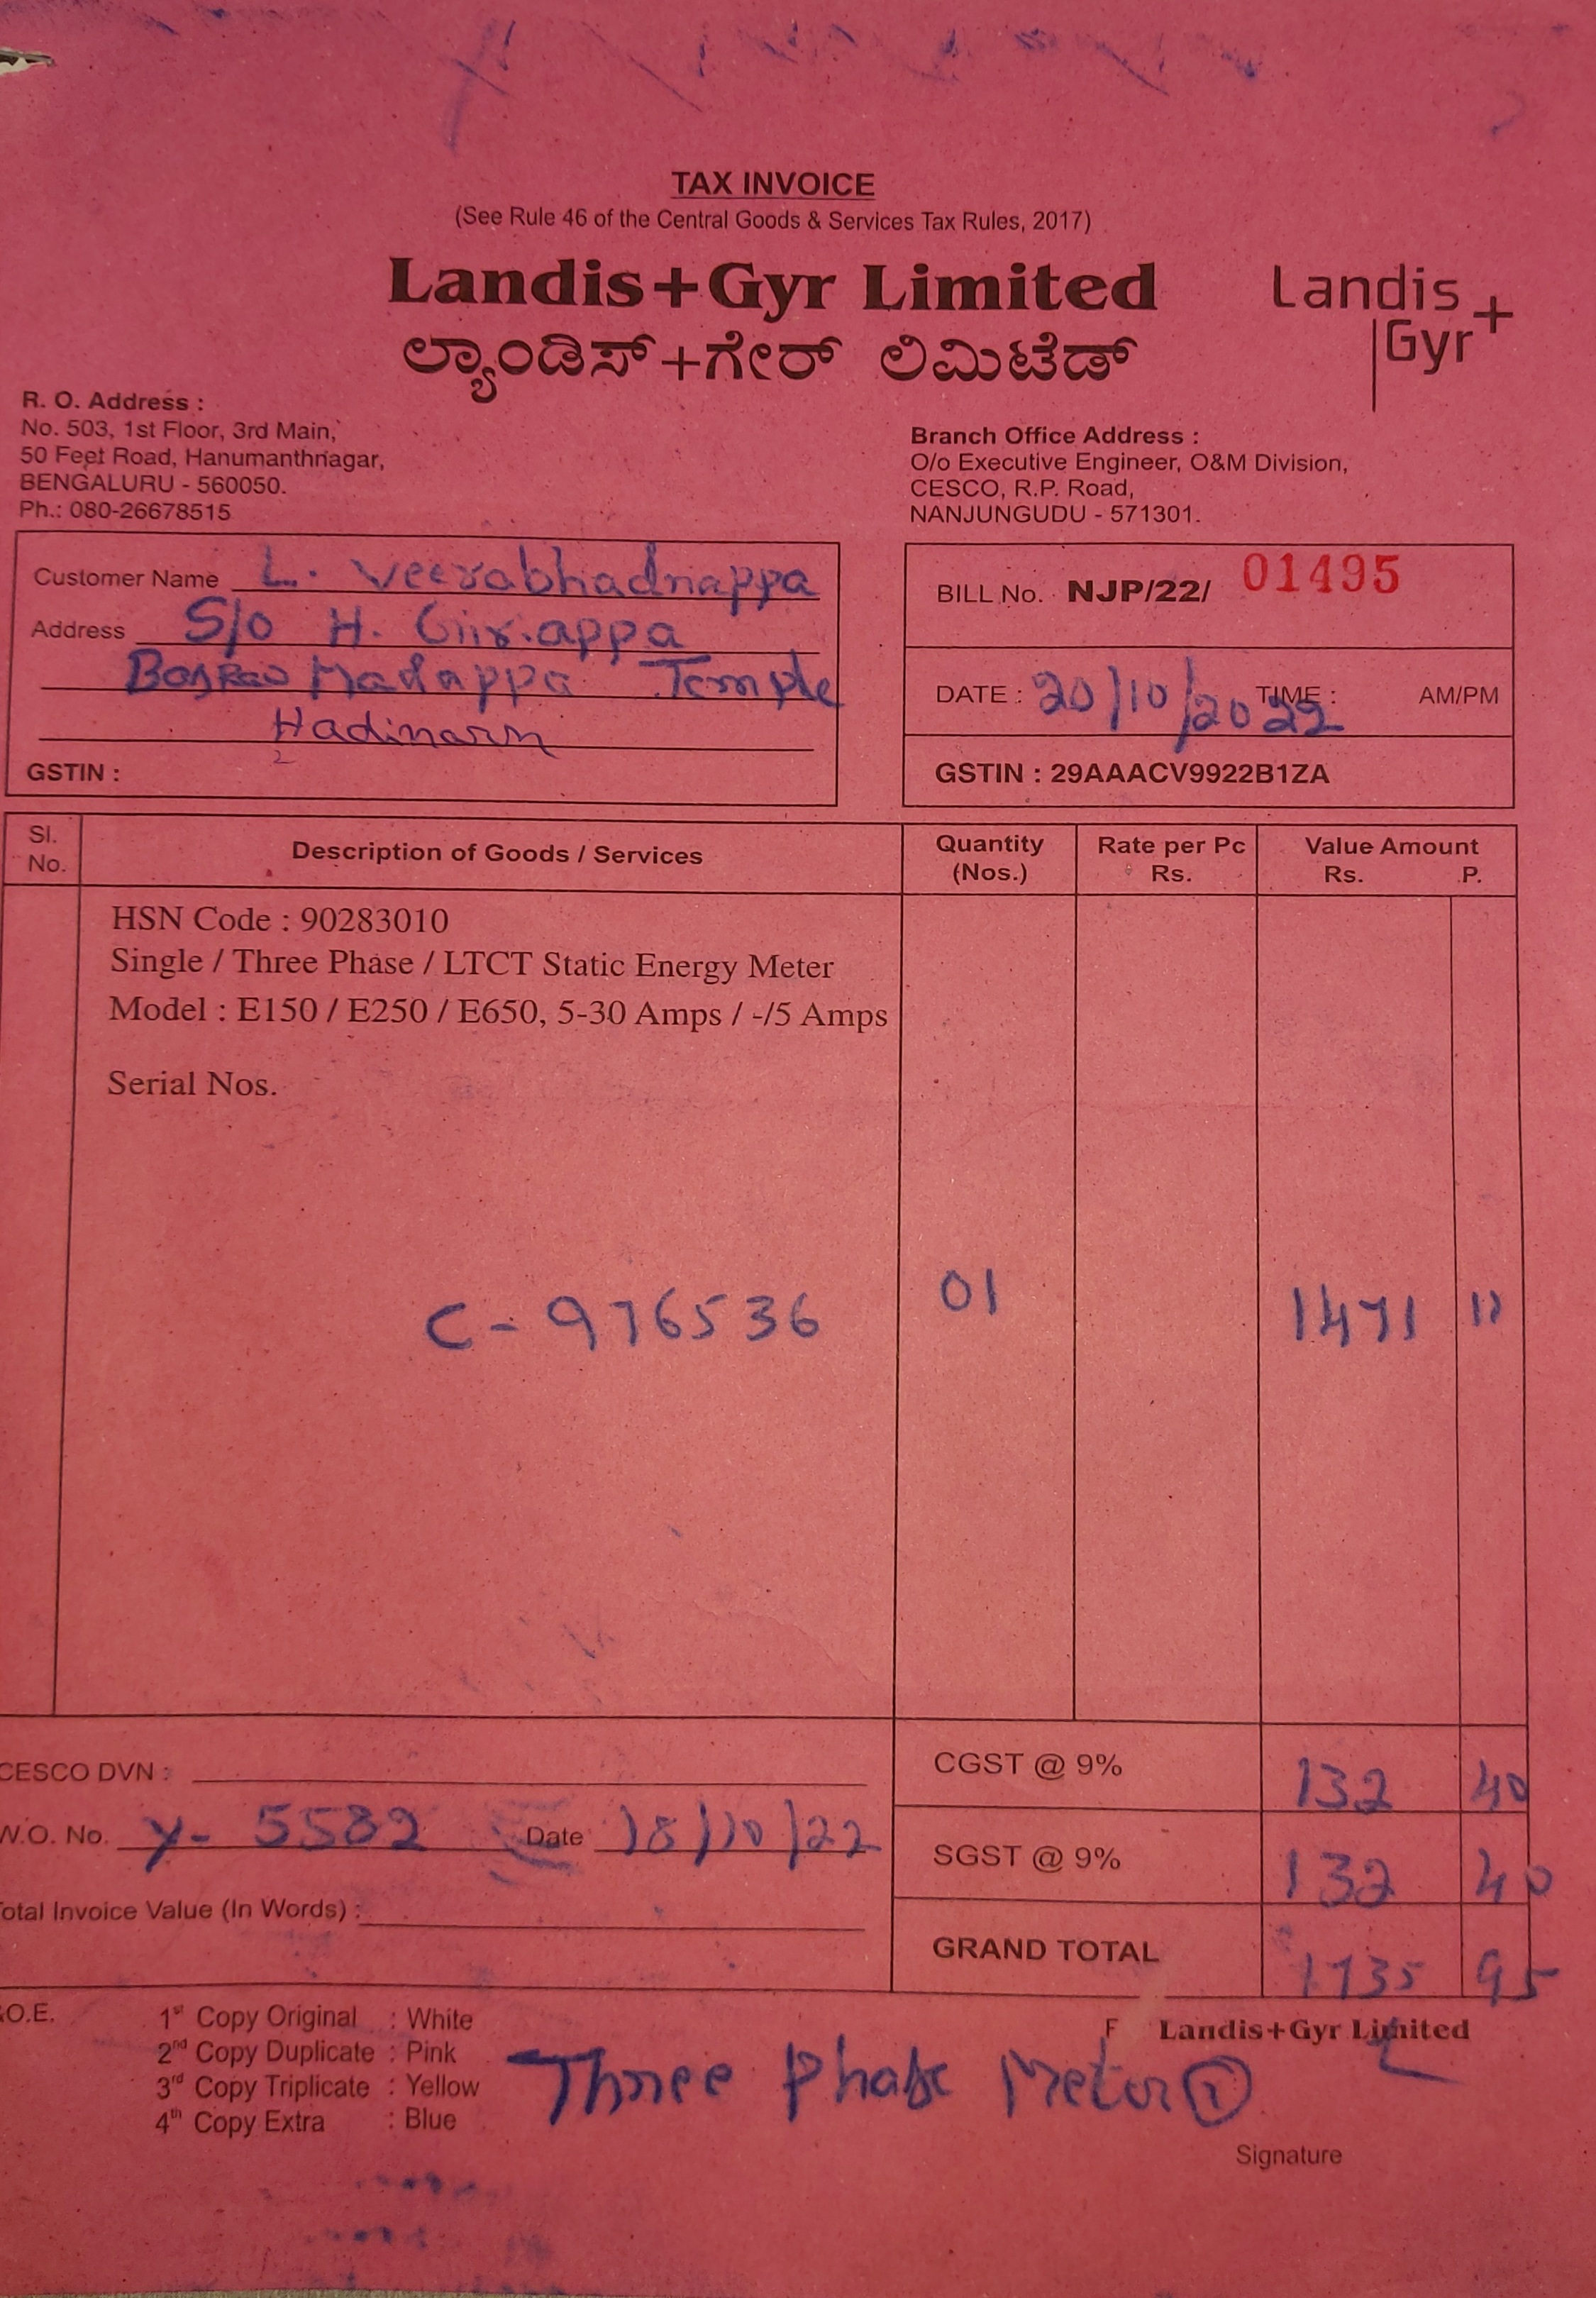 TAX INVOICE
(See Rule 46 of the Central Goods & Services Tax Rules, 2017)
Landis+Gyr Limited
ಲ್ಯಾಂಡಿಸ್+ಗೇರ್ ಲಿಮಿಟೆಡ್
Landis
Gyr+
R. O. Address :
No. 503, 1st Floor, 3rd Main,
50 Feet Road, Hanumanthnagar,
BENGALURU - 560050.
Ph.: 080-26678515
Branch Office Address :
O/o Executive Engineer, O&M Division,
CESCO, R.P. Road,
NANJUNGUDU - 571301.
Customer Name L. Veerabhadnappa
Address S/o H.
Madappa Temple
GSTIN :
BILL No. NJP/22/ 01495
DATE : 20/10/2022 TIME : AM/PM
GSTIN : 29AAACV9922B1ZA
Sl. No. Description of Goods / Services Quantity (Nos.) Rate per Pc Rs. Value Amount Rs. P.
HSN Code : 90283010
Single / Three Phase / LTCT Static Energy Meter
Model : E150 / E250 / E650, 5-30 Amps / -/5 Amps
Serial Nos.
C - 976536 01 1471 11
CESCO DVN :
W.O. No. y- 5582 Date 18/10/22
Total Invoice Value (In Words) :
CGST @ 9% 132 40
SGST @ 9% 132 40
GRAND TOTAL 1735 95
&O.E.
1st Copy Original : White
2nd Copy Duplicate : Pink
3rd Copy Triplicate : Yellow
4th Copy Extra : Blue
F Landis+Gyr Limited
Three Phase Meter 1
Signature